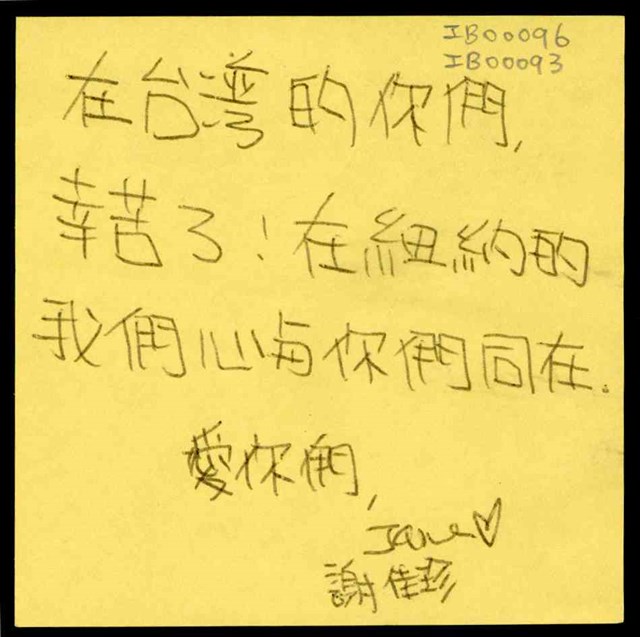 IB00096
IB00093
在台湾的你們,
幸苦了!在紐約的
我們心与你們同在.
愛你們,
Jane♡
謝佳珍